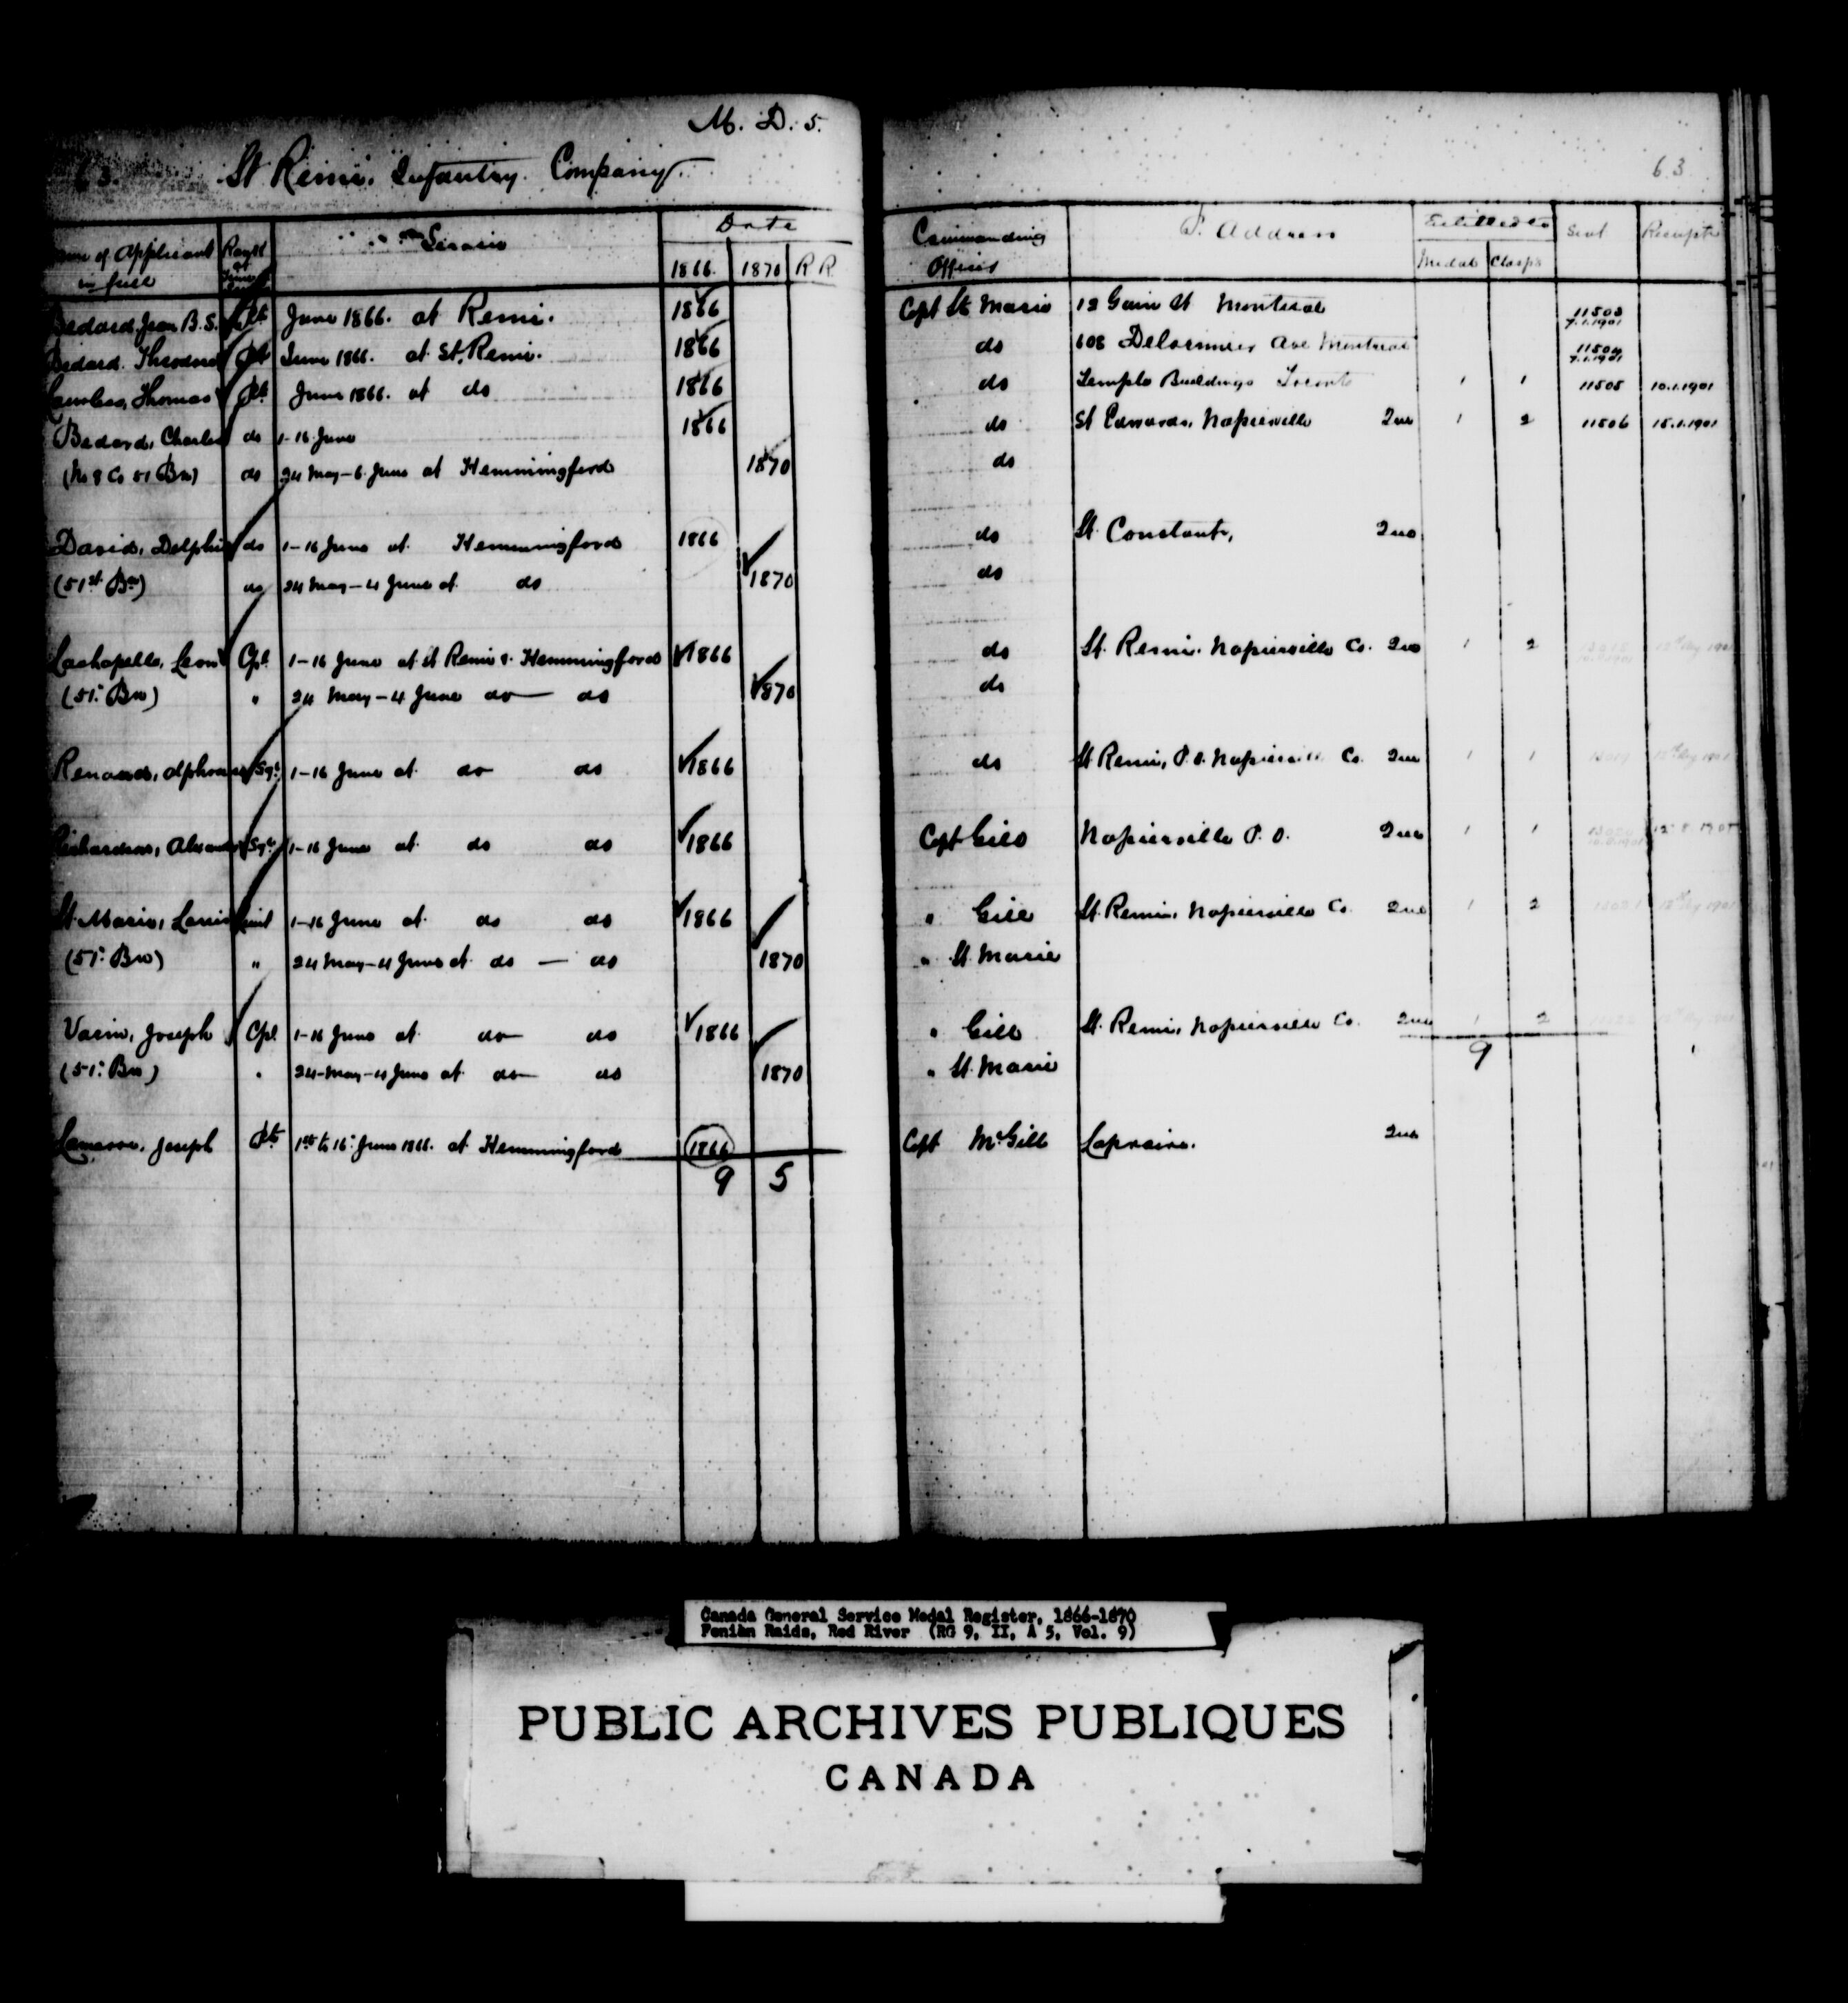 M. D. 5.
63. St Remi. Infantry. Company.
63
Name of Applicant in full Rank at Time Service Date 1866. 1870 R R Commanding Officer P. Address Entitled to Medal Clasps Sent Receipts
Bedard, Jean B. S. Pte June 1866. at Remi. 1866 Capt St Marie 12 Gain St Montreal 11503 7.1.1901
Bedard. Theodore Pte June 1866. at St. Remi. 1866 do 608 Delorimier Ave Montreal 11504 7.1.1901
Thomas Pte June 1866. at do 1866 do Temple Buildings Toronto 1 1 11505 10.1.1901
Bedard, Charles do 1-16 June 1866 do St Edwards, Napierville Que 1 2 11506 15.1.1901
(No 8 Co 51 Bn) do 24 May-6 June at Hemmingford 1870 do
David, Delphis do 1-16 June at Hemmingford 1866 do St. Constant, Que
(51st Bn) do 24 May-4 June at do 1870 do
Lachapelle, Leon Cpl 1-16 June at St Remi & Hemmingford 1866 do St. Remi. Napierville Co. Que 1 2
(51: Bn) " 24 May-4 June do — do 1870 do
Renaud, Alphonse Sgt 1-16 June at do do 1866 do St Remi, P.O. Napierville Co. Que 1 1
Richardson, Sgt 1-16 June at do do 1866 Capt Gill Napierville P. O. Que 1 1
St. Marie, Louis Lieut 1-16 June at do do 1866 " Gill St. Remi, Napierville Co. Que 1 2
(51: Bn) " 24 May-4 June at do — do 1870 " St. Marie
Varin, Joseph Cpl 1-16 June at do do 1866 " Gill St. Remi, Napierville Co. Que 1 2
(51: Bn) " 24-May-4 June at do do 1870 " St. Marie 9
Joseph Pte 1st to 16: June 1866. at Hemmingford 1866 Capt McGill Laprairie. Que
9 5
Canada General Service Medal Register, 1866-1870
Fenian Raids, Red River (RG 9, II, A 5, Vol. 9)
PUBLIC ARCHIVES PUBLIQUES
CANADA